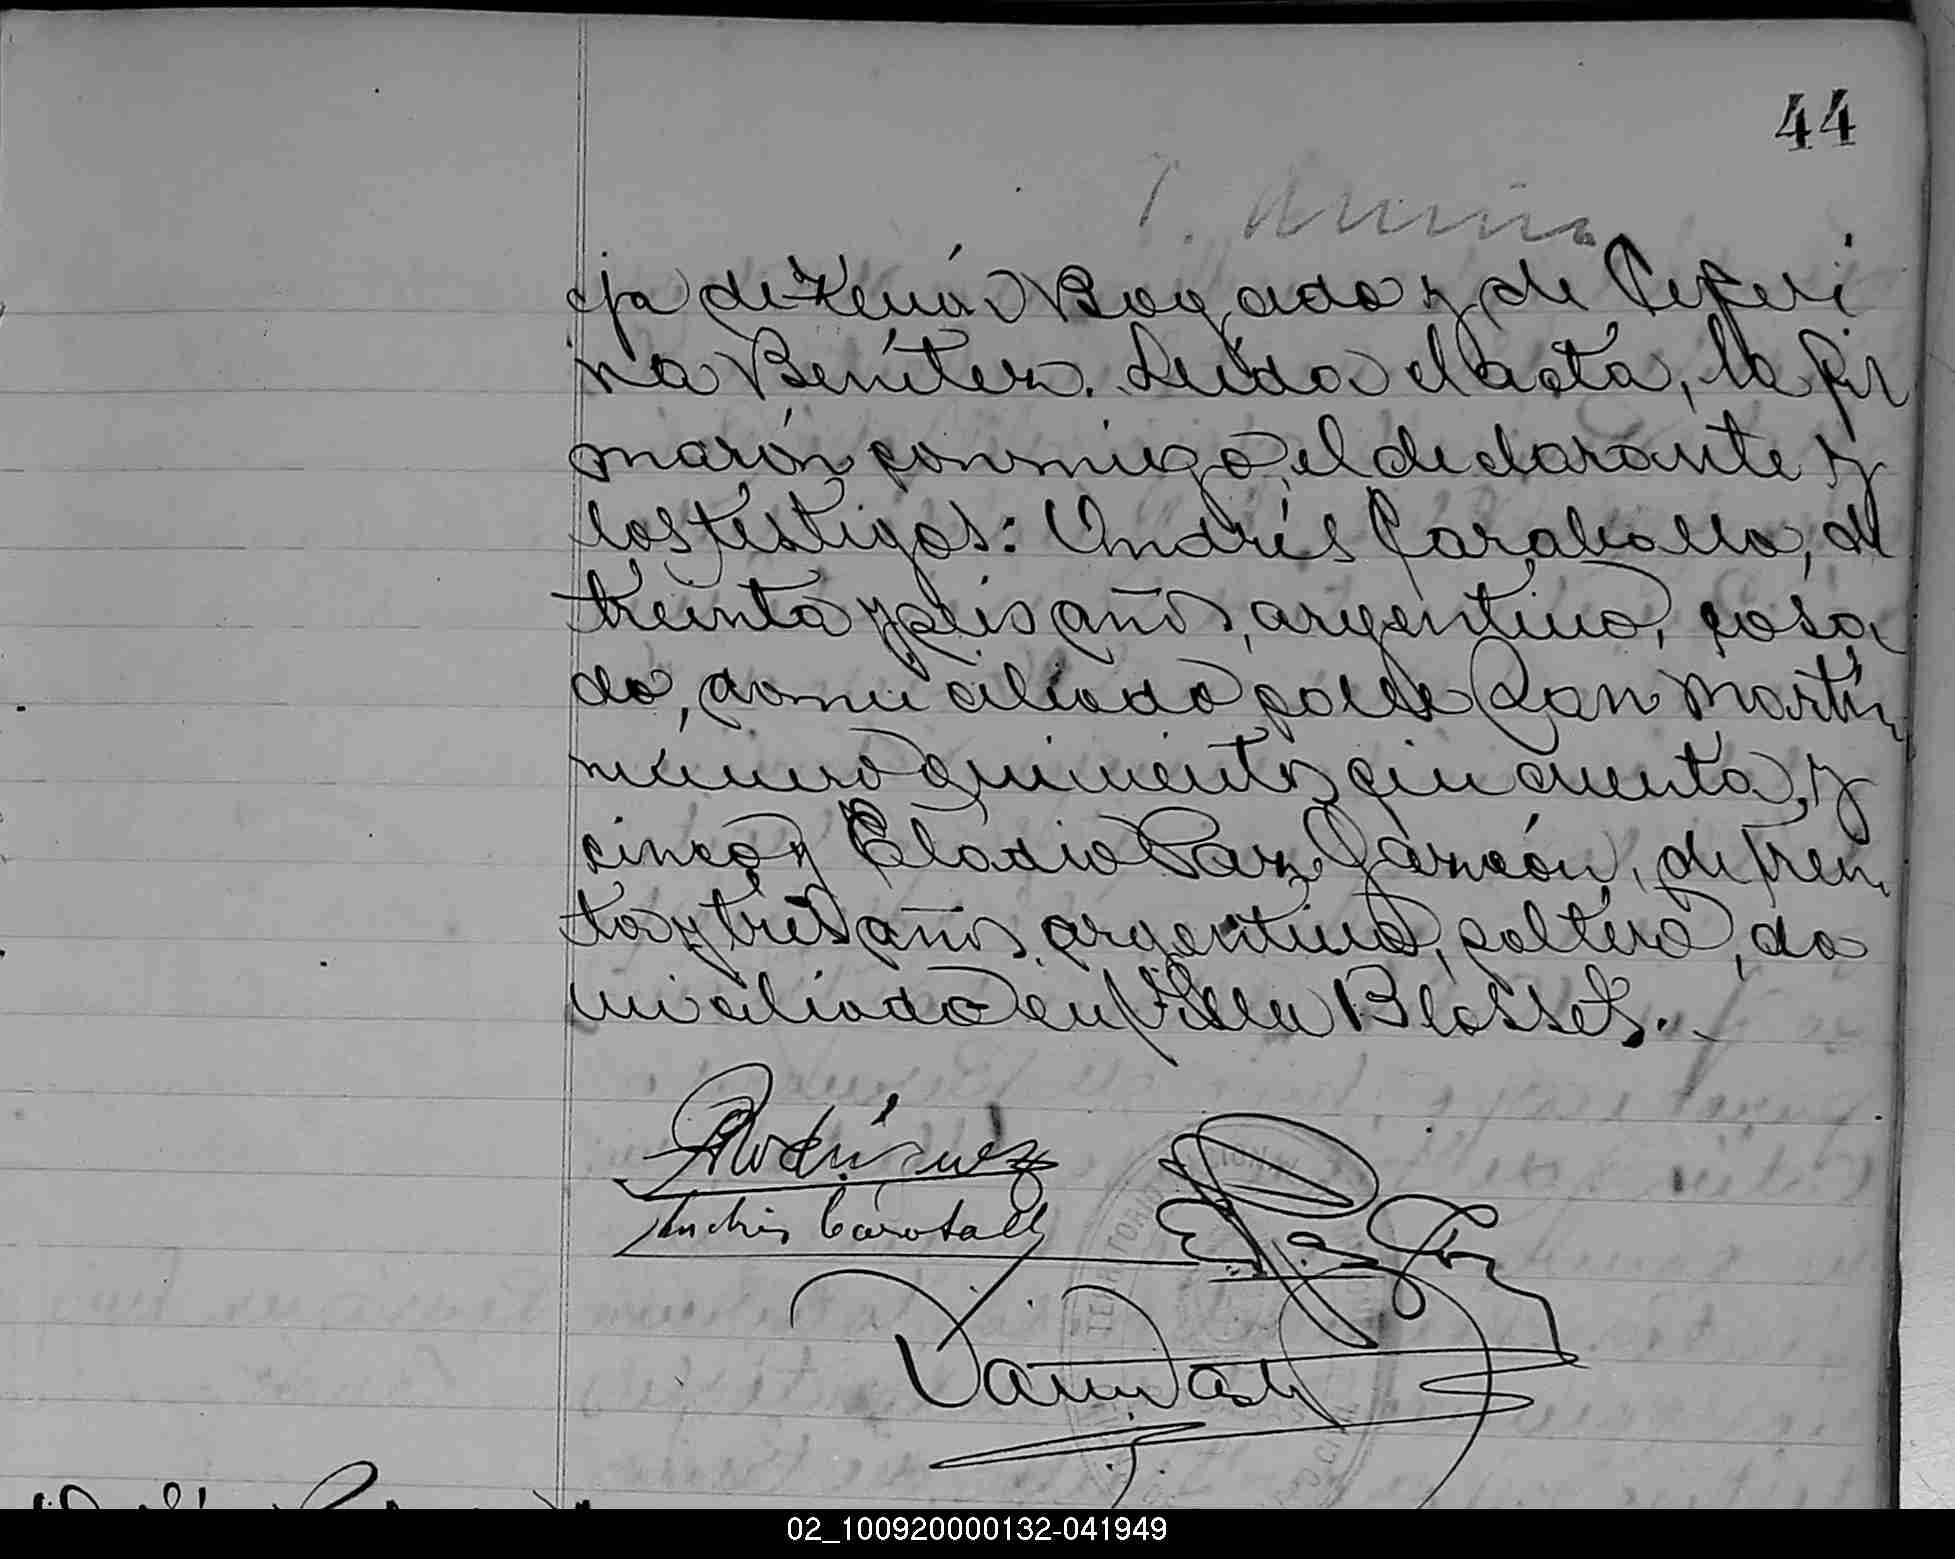 44
ja de Zenón Bogado y de Ceferi
na Benítez. Leída el acta, la fir
marón conmigo, el declarante y
los testigos: Andrés Caraballo, de
treinta y seis años, argentino, casa
do, domiciliado calle San Martín
número quinientos cincuenta y
cinco y Eladio Paz Garzón, de trein
ta y tres años, argentino, soltero, do
miciliado en Villa Blosset.
Rodríguez
Andrés Caraballo
TERRITORIO NACIONAL
CIVIL
02_100920000132-041949